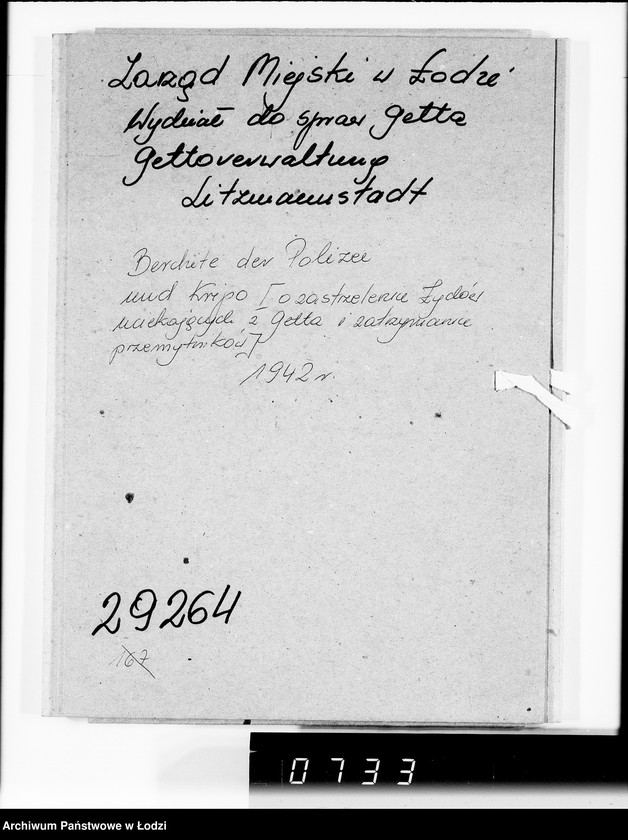 Zarząd Miejski w Łodzi
Wydział do spraw Getta
Gettoverwaltung
Litzmannstadt
Berchite der Polizei
und Kripo [o zastrzelenie Żydów
uciekających z Getta i zatrzymanie
przemytników]
1942 r.
29264
167
0733
Archiwum Państwowe w Łodzi